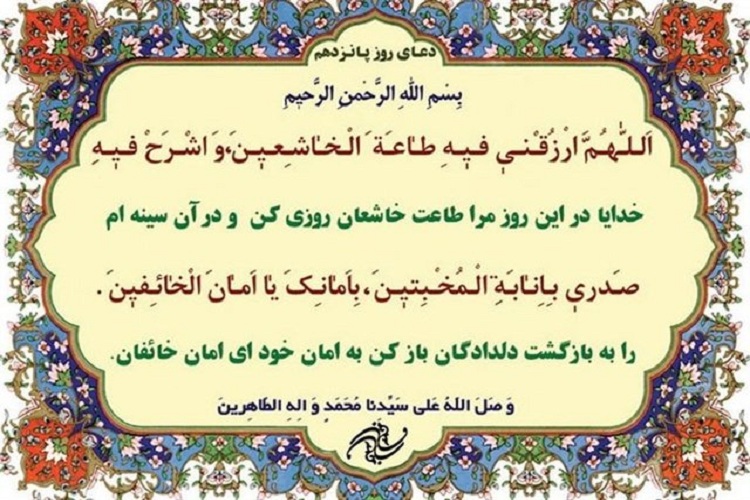 دعای روز پانزدهم
بِسْمِ اللهِ الرَّحْمنِ الرَّحیمِ
اَللّهُمَّ ارْزُقْنی فیهِ طاعَةَ الْخاشِعینَ، وَ اشْرَحْ فیهِ
خدایا در این روز مرا طاعت خاشعان روزی کن و در آن سینه ام
صَدری بِاِنابَةِ الْمُخْبِتینَ، بِاَمانِکَ یا اَمانَ الْخائِفینَ.
را به بازگشت دلدادگان باز کن به امان خود ای امان خائفان.
وَ صَلَ اللهُ عَلی سَیِّدِنا مُحَمَدٍ وَ الِهِ الطاهِرینَ